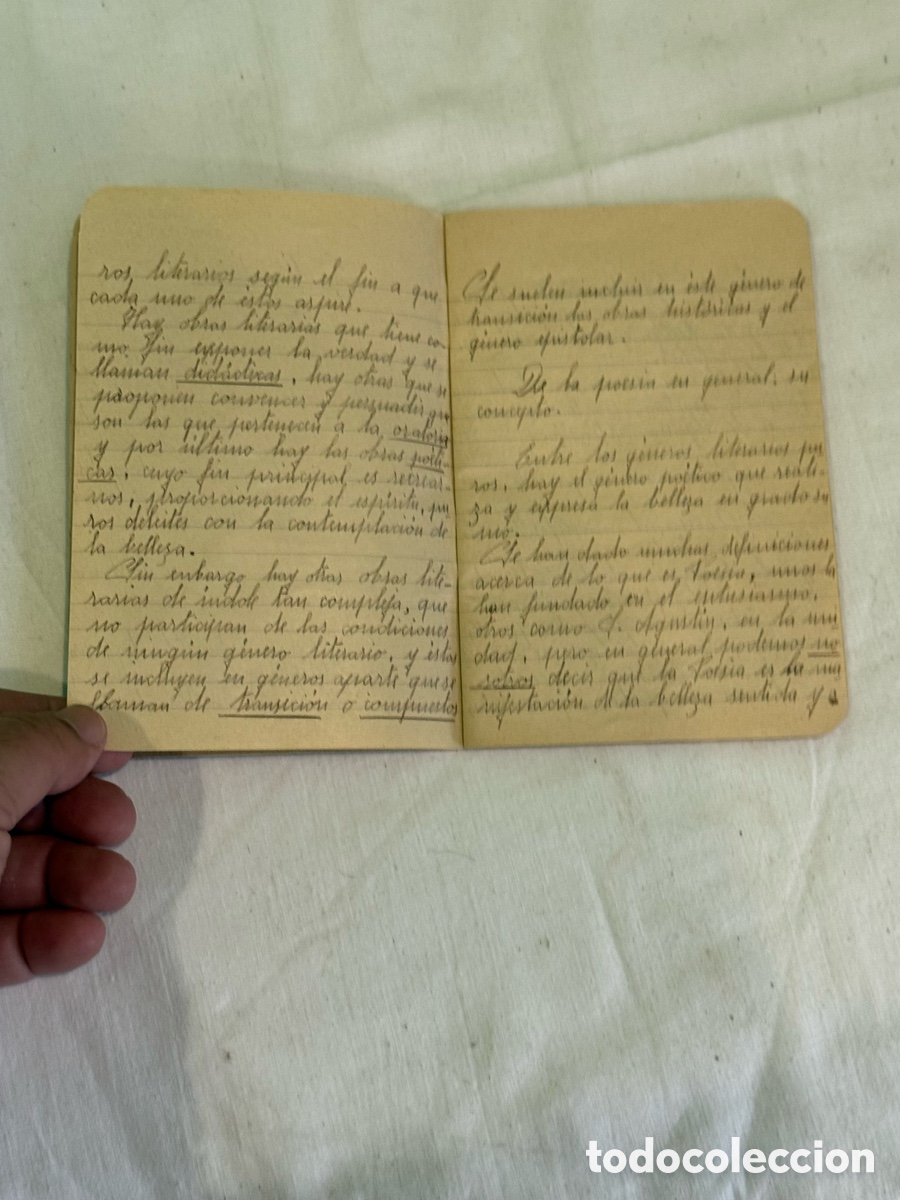 ros literarios según el fin a que
cada uno de éstos aspire.
Hay obras literarias que tiene co-
mo fin exponer la verdad y se
llaman didácticas, hay otras que se
proponen convencer y persuadir, que
son las que pertenecen a la oratoria
y por último hay las obras poéti-
cas, cuyo fin principal es recrear-
nos, proporcionando el espíritu, pu
ros deleites con la contemplación de
la belleza.
Sin enbargo hay otras obras lite-
rarias de índole tan compleja, que
no participan de las condiciones
de ningún género literario, y éstas
se incluyen en géneros aparte que se
llaman de transición o compuestos
Se suelen incluir en éste género de
transición las obras históricas y el
género epistolar.
De la poesía en general, su
concepto.
Entre los géneros literarios pu
ros, hay el género poético que reali-
za y expresa la belleza en grado su
mo.
Se han dado muchas definiciones
acerca de lo que es Poesía, unos la
han fundado en el entusiasmo,
otros como S. Agustín, en la uni
dad, pero en general podemos no
sotros decir que la Poesía es la ma
nifestación de la belleza sentida y
todocoleccion.com